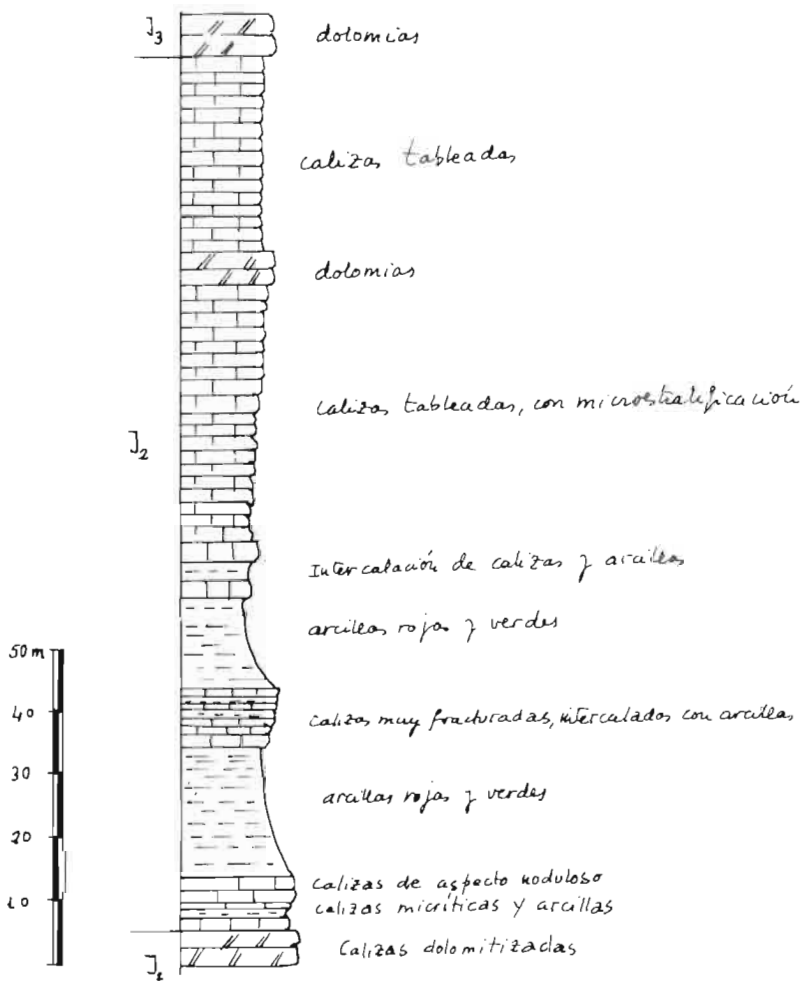 J3
dolomias
calizas tableadas
dolomias
calizas tableadas, con microestratificación
J2
Intercalación de calizas y arcillas
arcillas rojas y verdes
50 m
40
calizas muy fracturadas, interculados con arcillas
30
arcillas rojas y verdes
20
calizas de aspecto noduloso
10
calizas micríticas y arcillas
Calizas dolomitizadas
J1